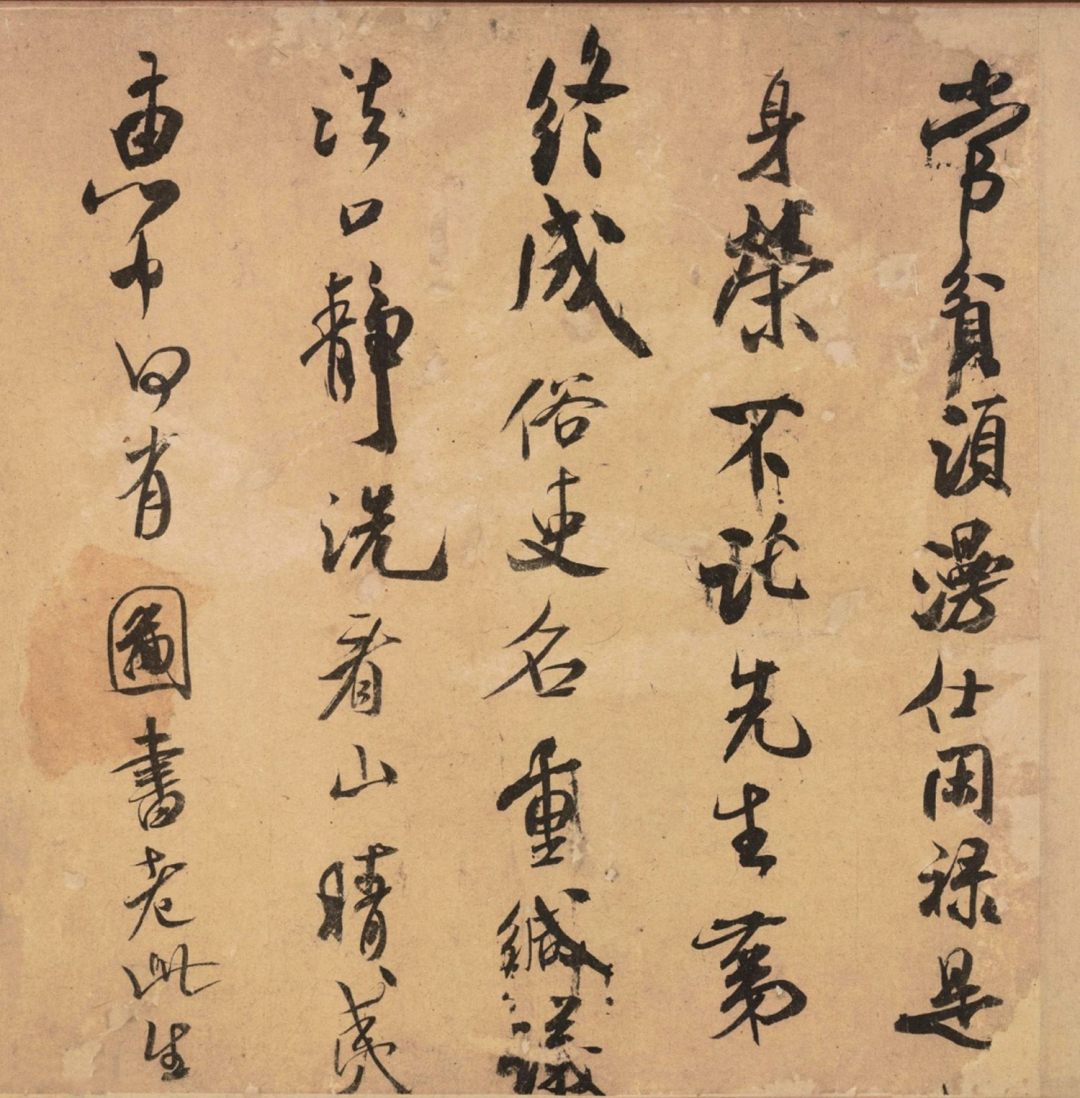 常貧須漫仕閑禄是
身榮不託先生第
終成俗吏名重緘議
法口靜洗看山晴夷
惠中何有圖書老此生